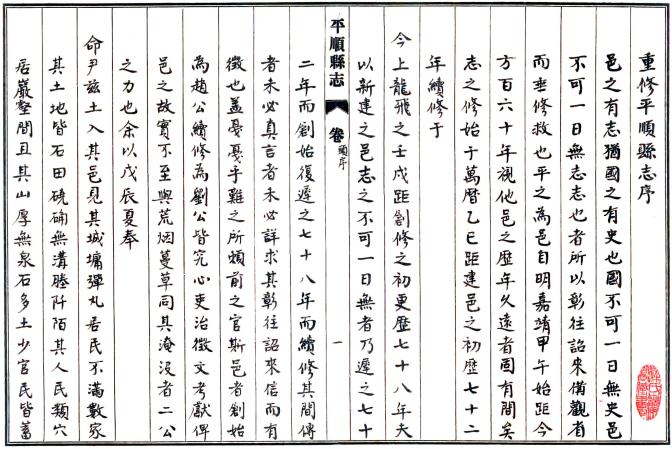 重修平順縣志序
邑之有志猶國之有史也國不可一日無史邑
不可一日無志志也者所以彰往詔来備觀省
而垂修救也平之為邑自明嘉靖甲午始距今
方百六十年視他邑之歷年久遠者固有間矣
志之修始于萬曆乙巳距建邑之初歷七十二
年續修于
今上龍飛之壬戌距創修之初更歷七十八年夫
以新建之邑志之不可一日無者乃遲之七十
平順縣志
卷
順序
一
二年而創始復遲之七十八年而續修其間傳
者未必真言者未必詳求其彰往詔来信而有
徵也盖憂憂乎難之所頼前之官斯邑者創始
為趙公續修為劉公皆究心吏治徵文考獻俾
邑之故實不至與荒烟蔓草同其淹没者二公
之力也余以戊辰夏奉
命尹兹土入其邑見其城墉彈丸居民不滿數家
其土地皆石田磽确無溝塍阡陌其人民類穴
居巖壑間且其山厚無泉石多土少官民皆蓄